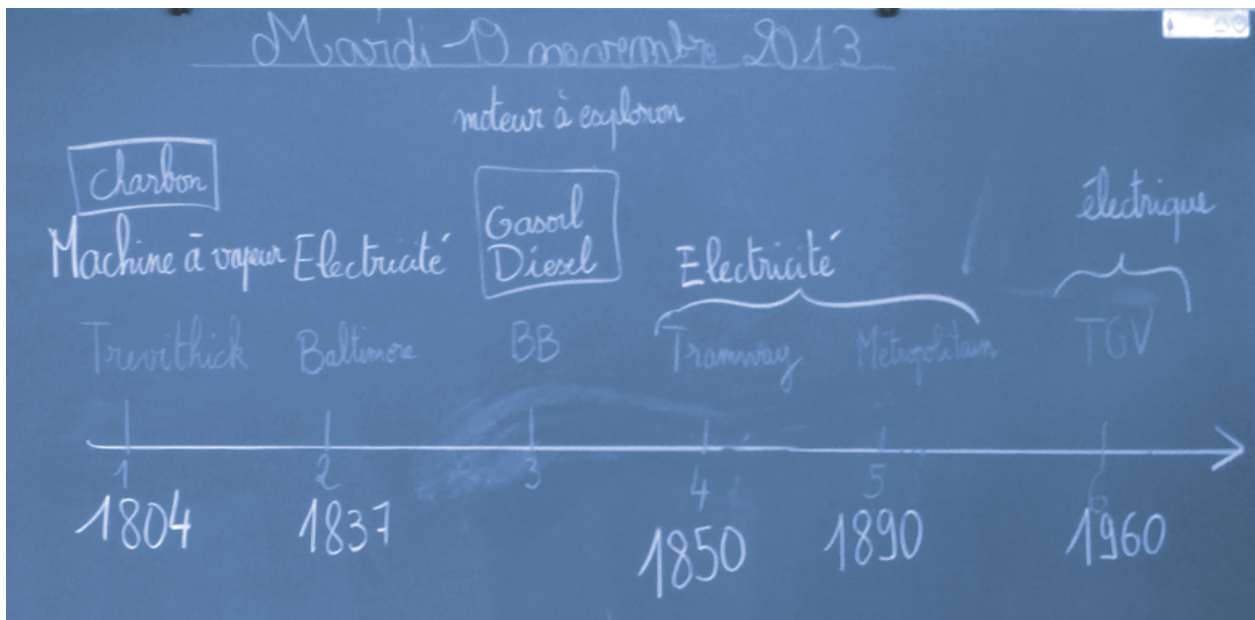 Mardi 19 novembre 2013
moteur à explosion
Charbon
électrique
Gasoil
Machine à vapeur Electricité Diesel Electricité
Trevithick Baltimore BB Tramway Métropolitain TGV
1 2 3 4 5 6
1804 1837 1850 1890 1960